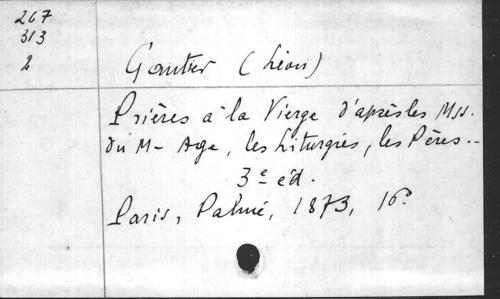 267
313
2
Gautier (Léon)
Prières à la Vierge d'après les Mss.
du M- Age, les Liturgies, les Pères...
3e éd.
Paris, Palmé, 1873, 16°